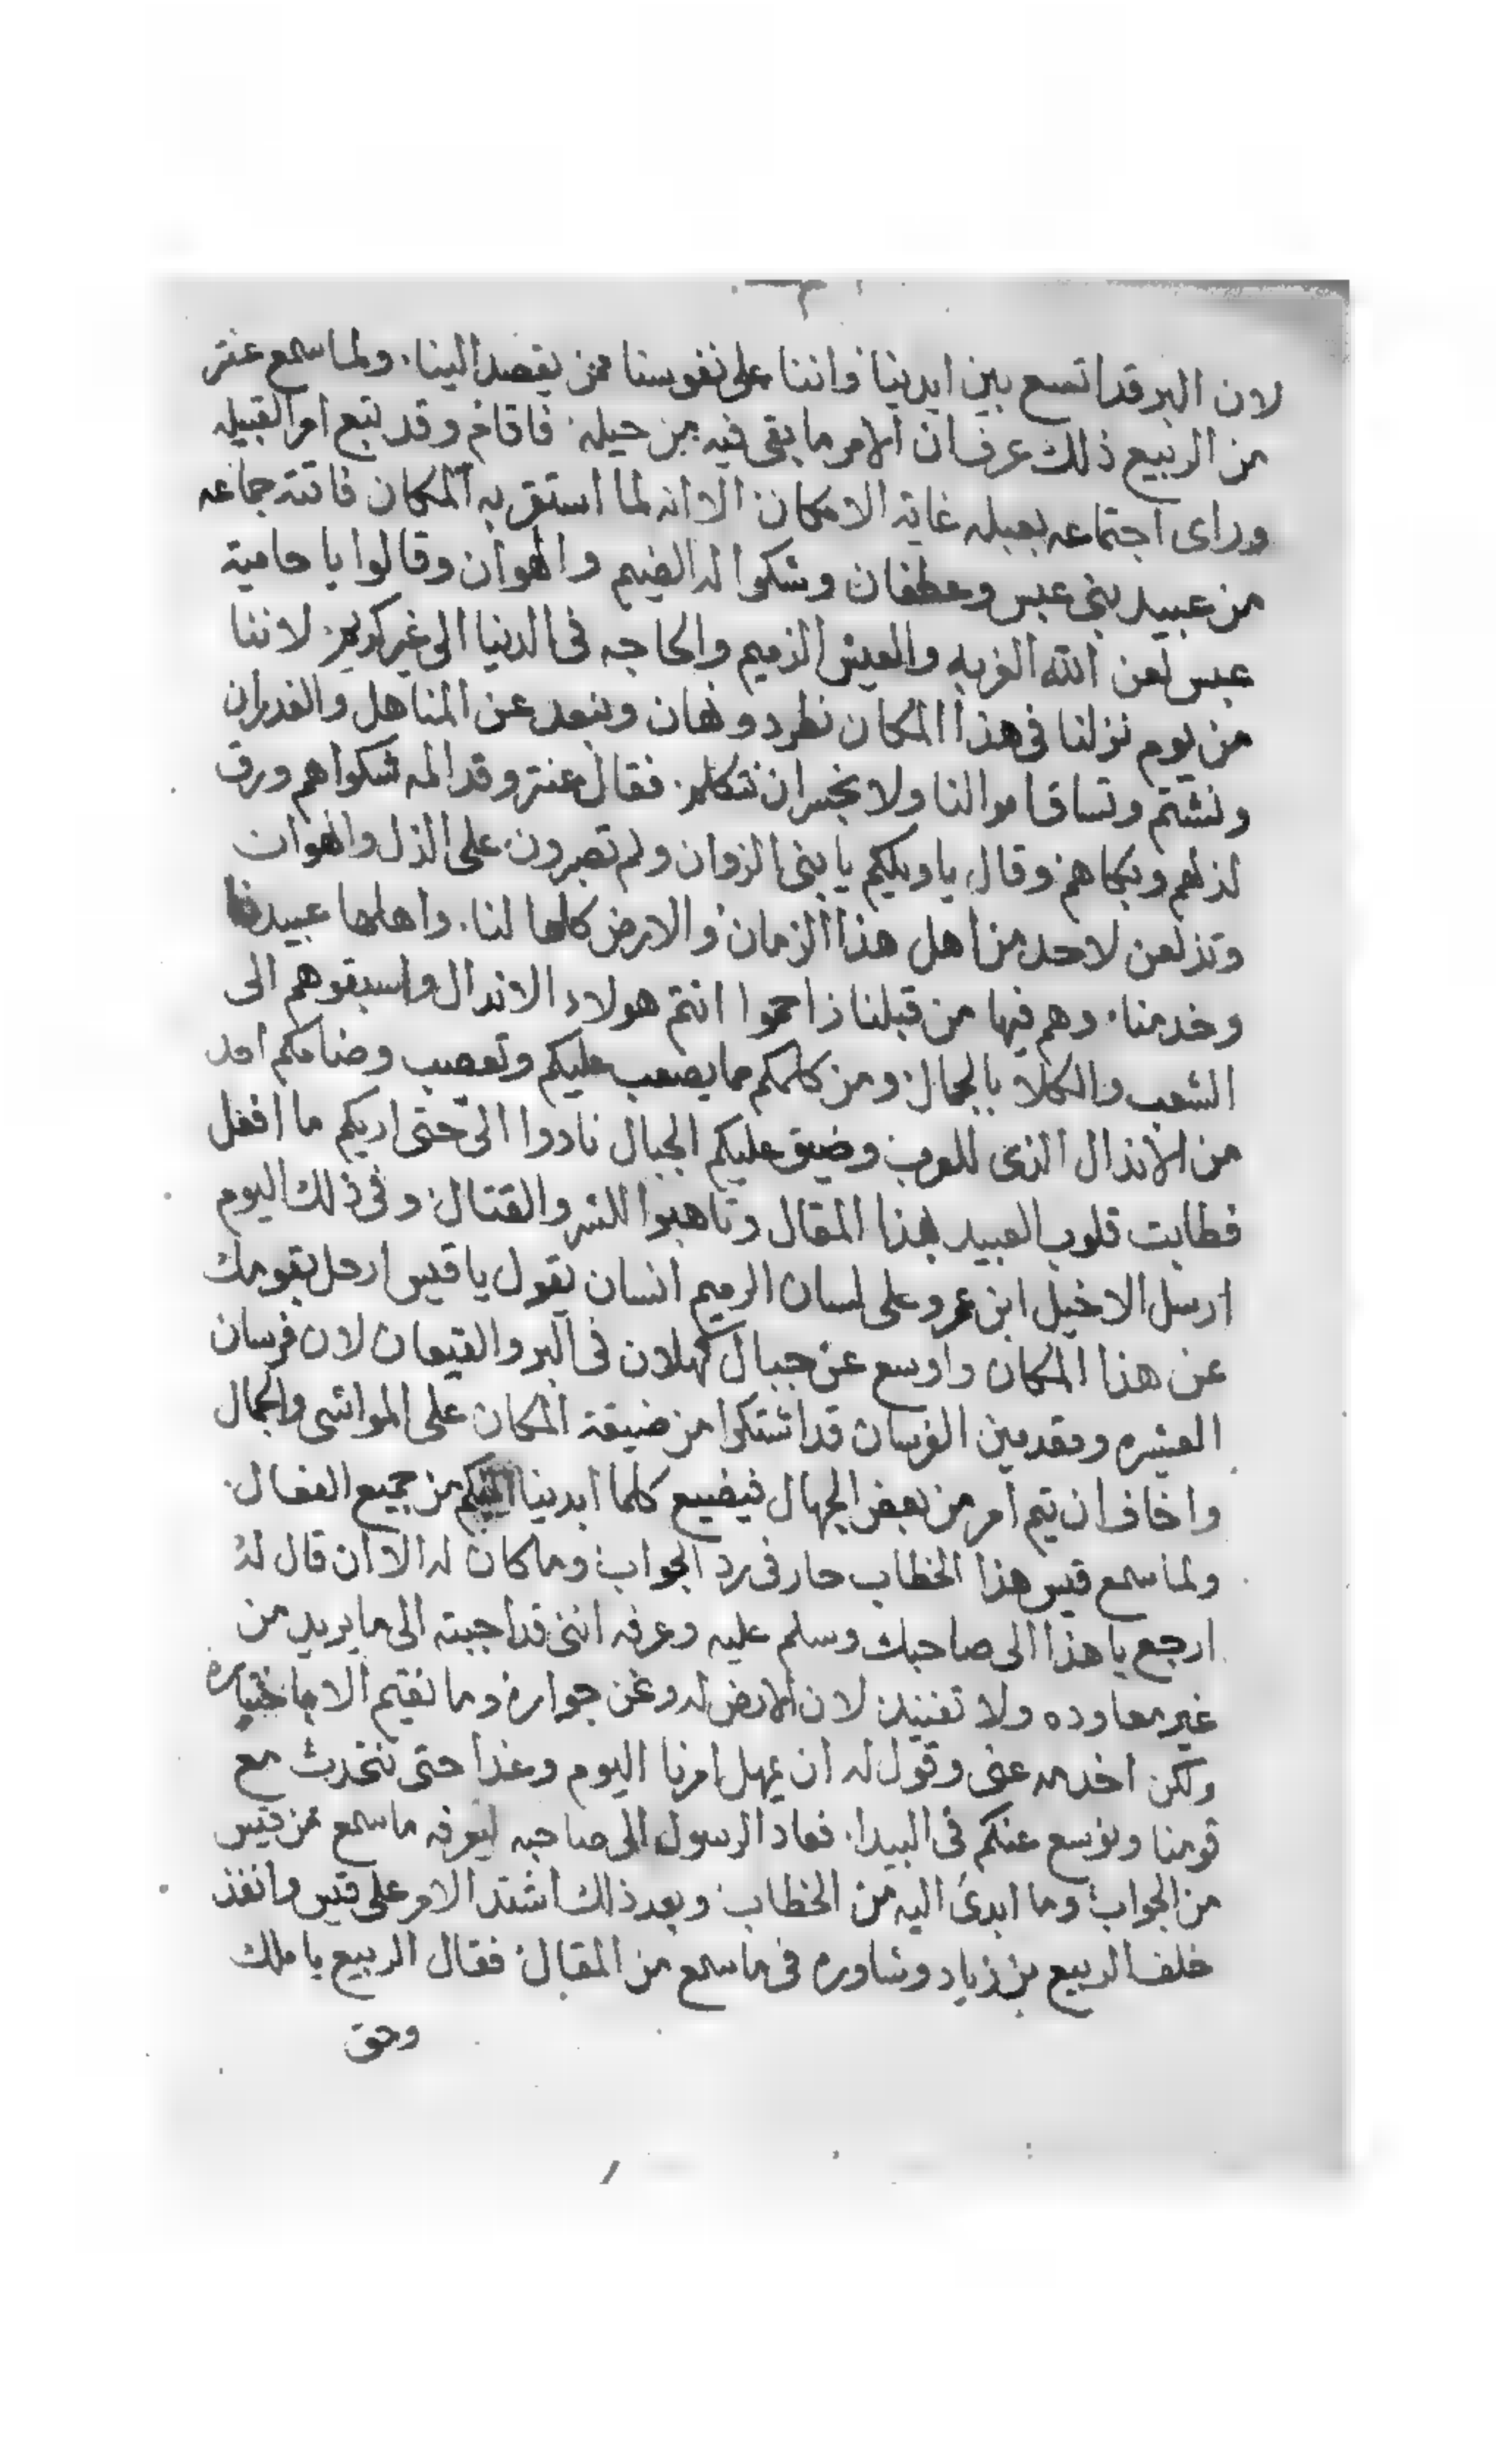 لان البر قد اتسع بين ايدينا وامننا على نفوسنا ممن يقصد الينا. ولما سمع عنتر
من الربيع ذلك عرف ان الامر ما بقى فيه من حيله. فاقام وقد تبع امر القبيله
وراى اجتماعه بعبله غاية الامكان. الا انه لما استقر به المكان فاتته جماعه
من عبيد بنى عبس وعطفان وشكوا له الضيم والهوان وقالوا يا حامية
عبس لعن الله الغربه والعيش الذميم والحاجه فى الدنيا الى غير كريم. لاننا
من يوم نزلنا فى هذا المكان نطرد ونهان ونبعد عن المناهل والغدران
ونشتم وتساق اموالنا ولا نجسر ان نتكلم. فقال عنتر وقد المه شكواهم ورق
لذلهم وبكاهم وقال يا ويلكم يا بنى الزوان ولم تصبرون على الذل والهوان
وتذلعن لاحد من اهل هذا الزمان والارض كلها لنا. واهلها عبيدنا
وخدمنا. وهم فيها من قبلنا زاحموا انتم هولاء الاندال واسبقوهم الى
الشعب والكلا بالجمال. ومن كلمكم مما يصعب عليكم وتعصب وضامكم احد
من الانذال الذى للعرب وضيق عليكم الجبال نادوا الىّ حتى اريكم ما افعل
فطابت قلوب العبيد بهذا المقال وتاهبوا للشر والقتال. وفى ذلك اليوم
ارسل الاخيل ابن عمرو على لسان الرميم انسان يقول يا قيس ارحل بقومك
عن هذا المكان واوسع عن جبال كهلان فى البر والقيعان لان فرسان
العشيره ومقدمين الفرسان قد اشتكوا من ضيقة المكان على المواشى والجمال
واخاف ان يتم امر من بعض الجهال فيضيع كلما ابدينا اليكم من جميع الفعال.
ولما سمع قيس هذا الخطاب حار فى رد الجواب. وما كان له الا ان قال له
ارجع يا هذا الى صاحبك وسلم عليه وعرفه اننى قد اجبته الى ما يريد من
غير معاوده ولا تفنيد. لان الارض له ونحن جواره وما نقيم الا باختياره
ولكن اخدمه عنى وقول له ان يمهل امرنا اليوم وغدا حتى نتحدث مع
قومنا ونوسع عنكم فى البيدا. فعاد الرسول الى صاحبه ليعرفه ما سمع من قيس
من الجواب وما ابدىٔ اليه من الخطاب. وبعد ذلك اشتد الامر على قيس وانفذ
خلف الربيع بن زياد وشاوره فى ما سمع من المقال. فقال الربيع يا ملك
وحق